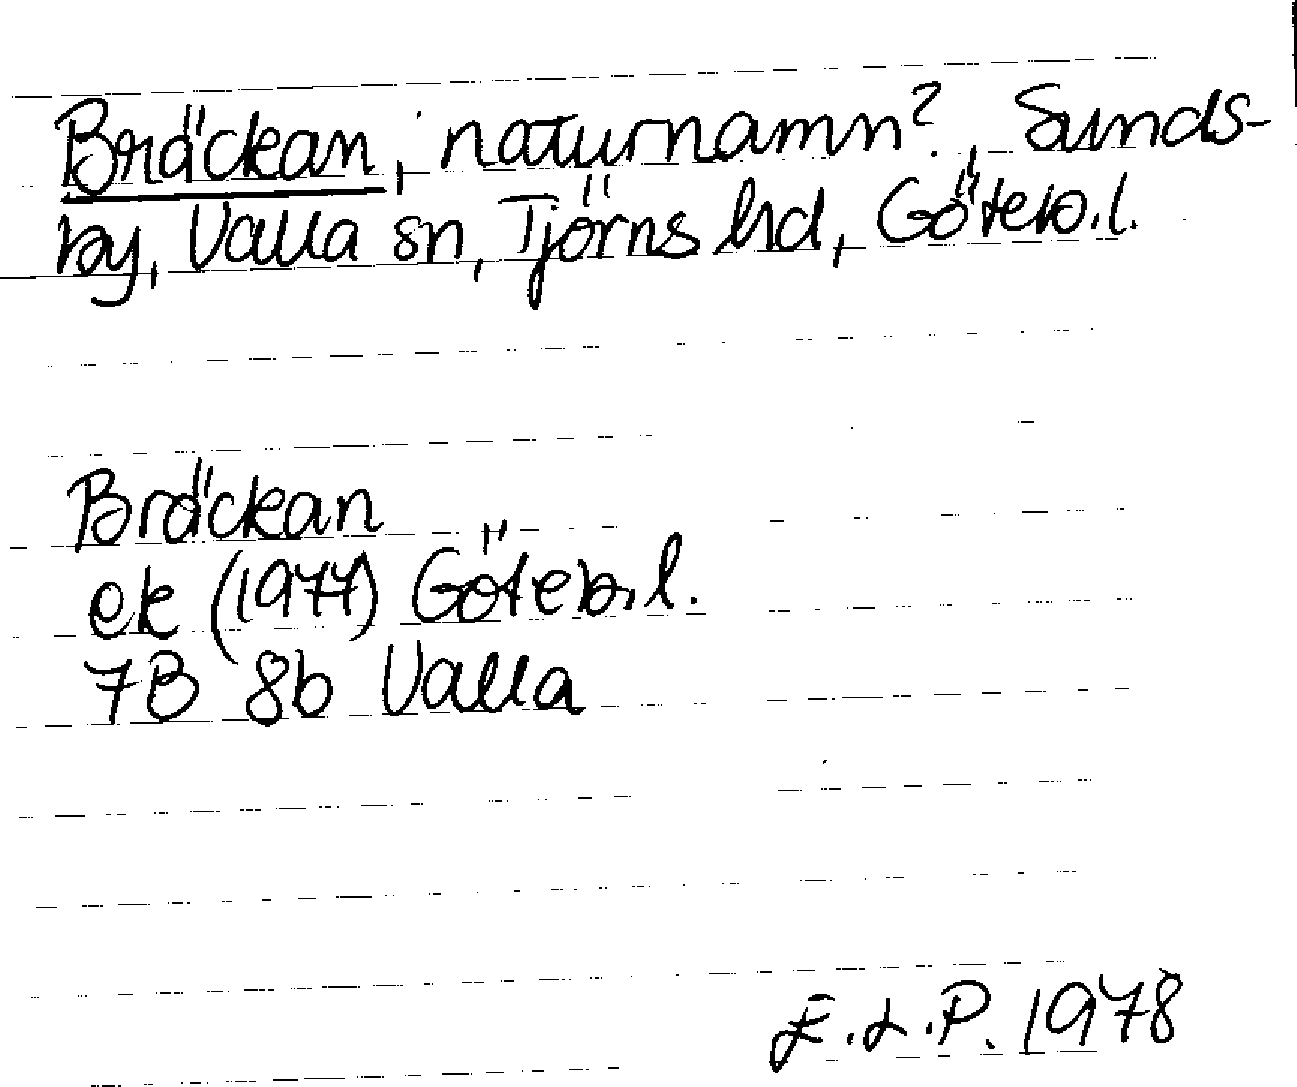 Bräckan, naturnamn?, Sunds-
by, Valla sn, Tjörns hd, Göteb.l.
Bräckan
ek (1977) Göteb.l.
7B 8b Valla
E.L.P. 1978